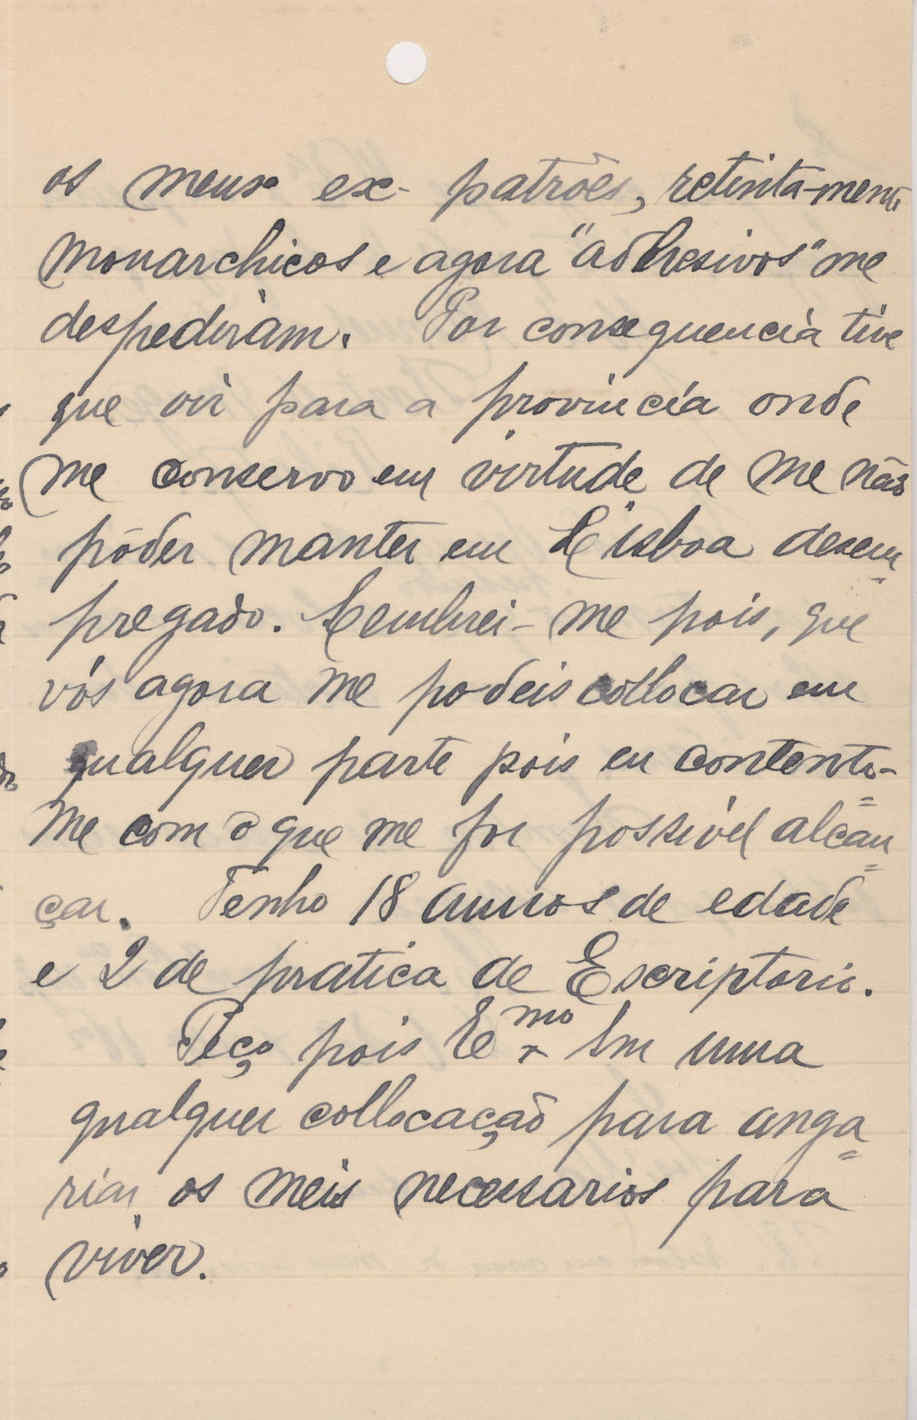 os meus ex-patrões, retinta-mente
monarchicos e agora "adhesivos" me
despediram. Por consequencia tive
que vir para a provincia onde
me conservo em virtude de me não
pôder manter em Lisboa desem
pregado. Lembrei-me pois, que
vós agora me podeis collocar em
qualquer parte pois eu contento-
me com o que me for possivel alcan
çar. Tenho 18 annos de edade
e 2 de pratica de Escriptorio.
Peço pois Exmo Snr uma
qualquer collocação para anga
riar os meis necessarios para
viver.